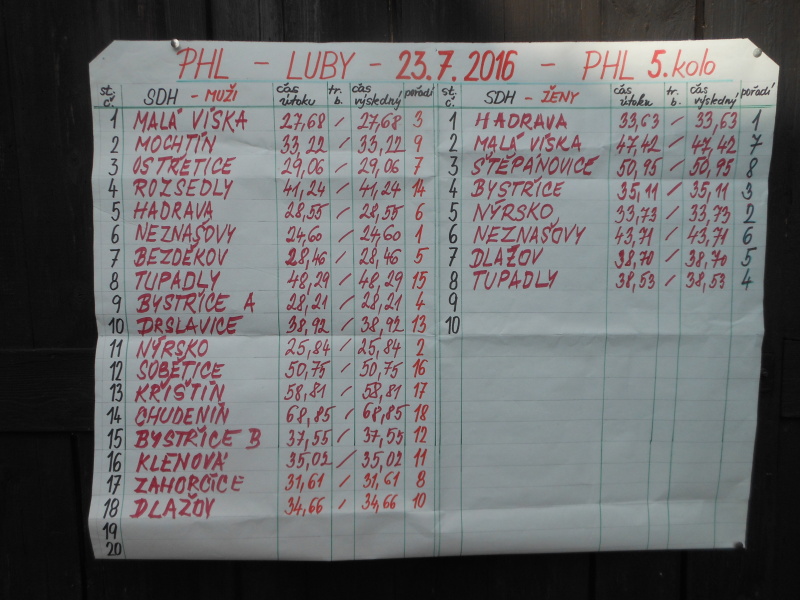 PHL - LUBY - 23.7.2016 - PHL 5.kolo
st. č. SDH - MUŽI čas útoku tr. b. čas výsledný pořadí st. č. SDH - ŽENY čas útoku tr. b. čas výsledný pořadí
1 MALÁ VÍSKA 27,68 / 27,68 3 1 HADRAVA 33,63 / 33,63 1
2 MOCHTÍN 33,22 / 33,22 9 2 MALÁ VÍSKA 47,42 / 47,42 7
3 OSTŘETICE 29,06 / 29,06 7 3 ŠTĚPÁNOVICE 50,95 / 50,95 8
4 ROZSEDLY 41,24 / 41,24 14 4 BYSTŘICE 35,11 / 35,11 3
5 HADRAVA 28,55 / 28,55 6 5 NÝRSKO 33,73 / 33,73 2
6 NEZNAŠOVY 24,60 / 24,60 1 6 NEZNAŠOVY 43,71 / 43,71 6
7 BEZDĚKOV 28,46 / 28,46 5 7 DLAŽOV 38,70 / 38,70 5
8 TUPADLY 48,29 / 48,29 15 8 TUPADLY 38,53 / 38,53 4
9 BYSTŘICE A 28,21 / 28,21 4 9
10 DRSLAVICE 38,92 / 38,92 13 10
11 NÝRSKO 25,84 / 25,84 2
12 SOBĚTICE 50,75 / 50,75 16
13 KŘIŠTÍN 58,81 / 58,81 17
14 CHUDENÍN 68,85 / 68,85 18
15 BYSTŘICE B 37,55 / 37,55 12
16 KLENOVÁ 35,02 / 35,02 11
17 ZAHORČICE 31,61 / 31,61 8
18 DLAŽOV 34,66 / 34,66 10
19
20